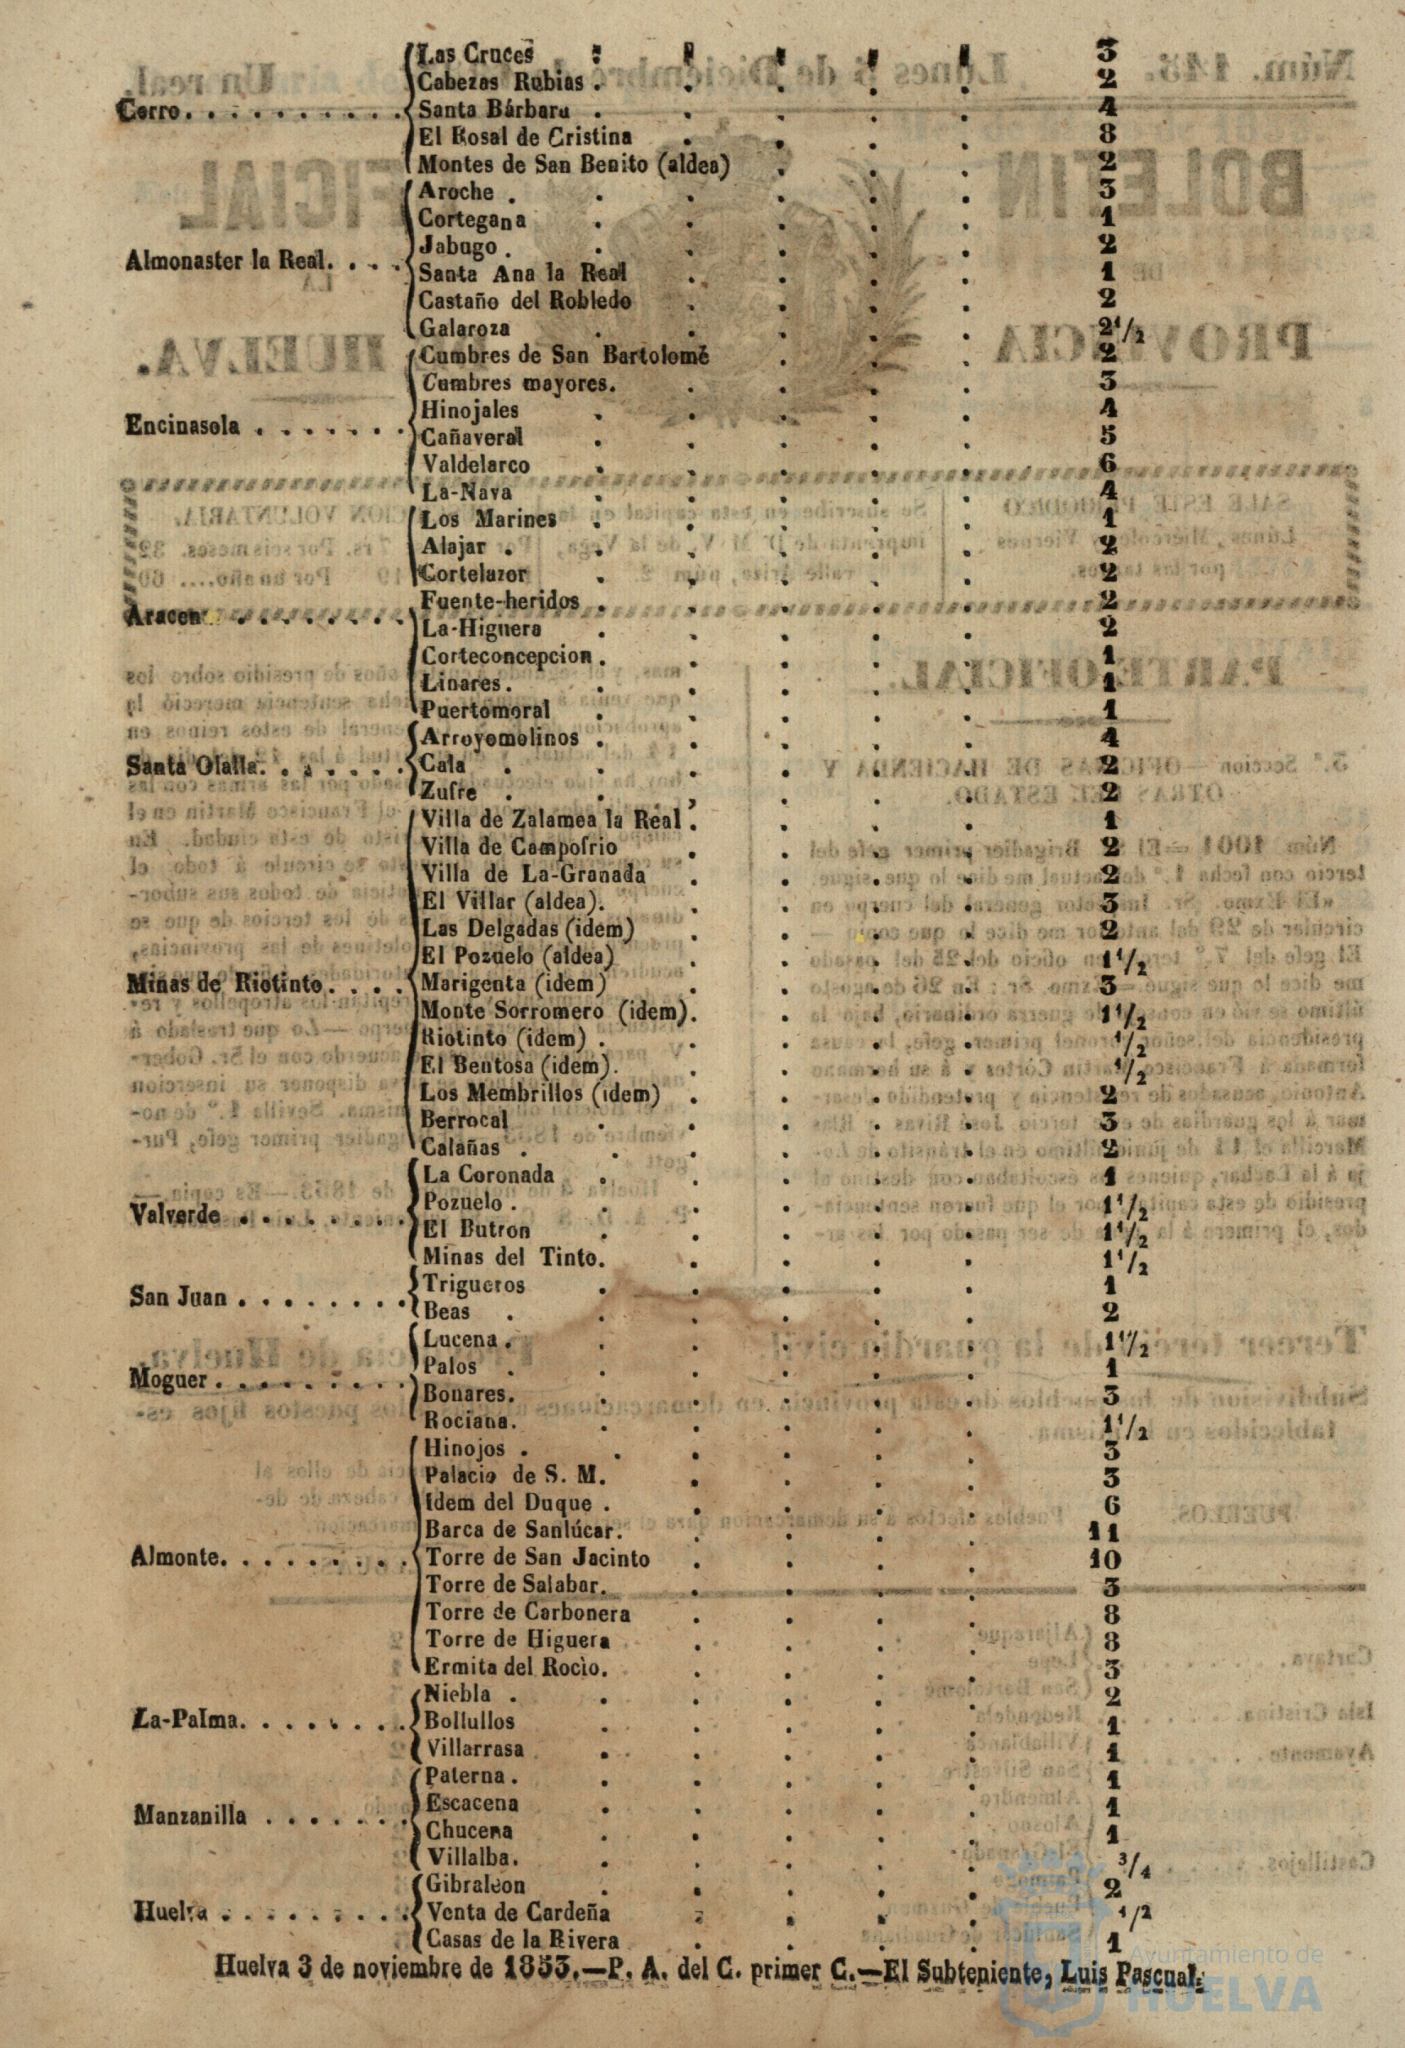 Las Cruces 3
Cabezas Rubias . 2
Cerro. Santa Bárbara . 4
El Rosal de Cristina 8
Montes de San Benito (aldea) 2
Aroche . 3
Cortegana 1
Jabugo . 2
Almonaster la Real. Santa Ana la Real 1
Castaño del Robledo 2
Galaroza 2 1/2
Cumbres de San Bartolomé 2
Cumbres mayores. 3
Hinojales 4
Encinasola Cañaveral 5
Valdelarco 6
La-Nava 4
Los Marines 1
Alajar . 2
Cortelazor 2
Fuente-heridos . 2
Aracena La-Higuera 2
Corteconcepcion . 1
Linares. 1
Puertomoral 1
Arroyomolinos . 4
Santa Olalla. Cala 2
Zufre 2
Villa de Zalamea la Real . 1
Villa de Campofrio 2
Villa de La-Granada 2
El Villar (aldea). 3
Las Delgadas (idem) 2
El Pozuelo (aldea) 1 1/2
Minas de Riotinto. Marigenta (idem) 3
Monte Sorromero (idem). 1 1/2
Riotinto (idem) . 1/2
El Bentosa (idem). 1/2
Los Membrillos (idem) 2
Berrocal 3
Calañas . 2
La Coronada 1
Pozuelo . 1 1/2
Valverde El Butron 1 1/2
Minas del Tinto. 1 1/2
San Juan Trigueros 1
Beas 2
Lucena . 1 1/2
Palos 1
Moguer. Bonares. 3
Rociana. 1 1/2
Hinojos . 3
Palacio de S. M. 3
Idem del Duque . 6
Barca de Sanlúcar. 11
Almonte. Torre de San Jacinto 10
Torre de Salabar. 3
Torre de Carbonera 8
Torre de Higuera 8
Ermita del Rocio. 3
Niebla . 2
La-Palma. Bollullos 1
Villarrasa 1
Paterna . 1
Escacena 1
Manzanilla Chucena 1
Villalba. 3/4
Gibraleon 2
Huelva Venta de Cardeña 1/2
Casas de la Rivera 1
Huelva 3 de noviembre de 1853.—P. A. del C. primer C.—El Subteniente, Luis Pascual.
Ayuntamiento de
HUELVA